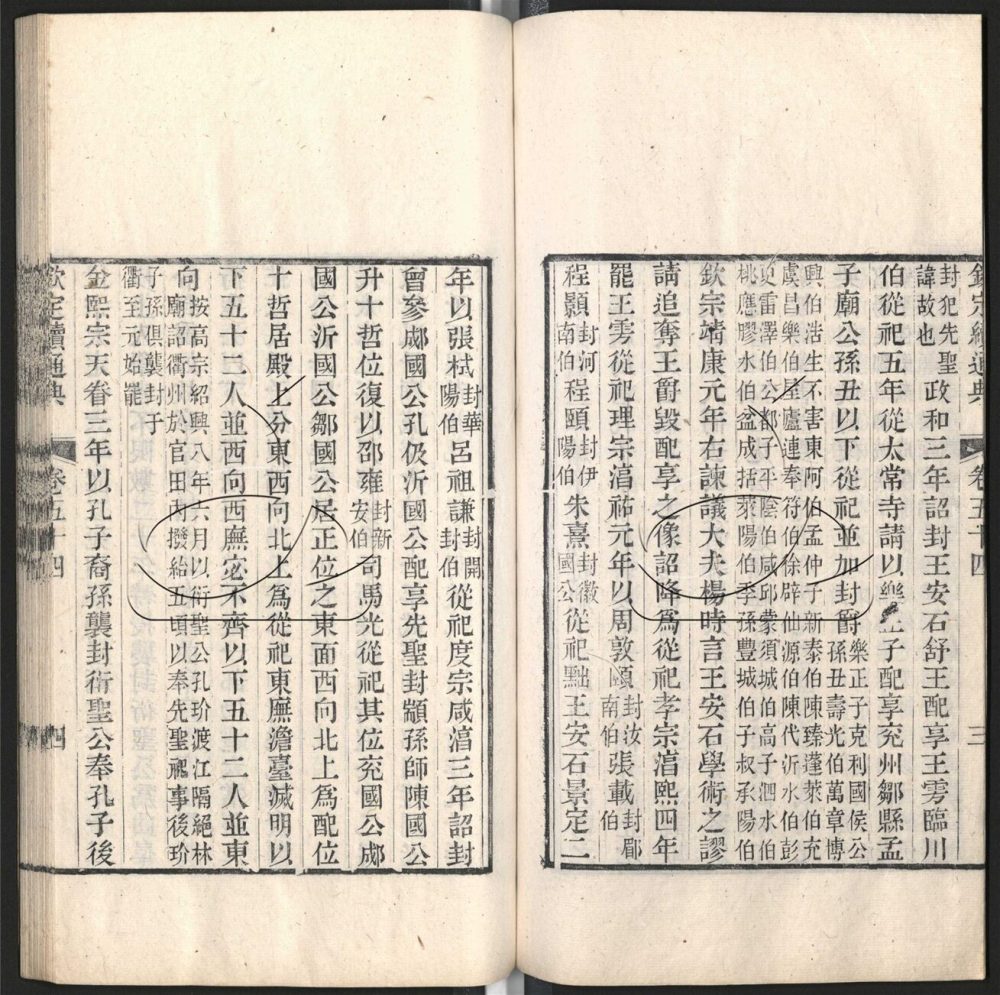 欽定續通典　卷五十四　三
封犯先聖諱故也政和三年詔封王安石舒王配享王雱臨川
伯從祀五年從太常寺請以樂正子配享兗州鄒縣孟
子廟公孫丑以下從祀並加封爵樂正子克利國侯公孫丑壽光伯萬章博
興伯浩生不害東阿伯孟仲子新泰伯陳臻蓬萊伯充
虞昌樂伯屋廬連奉符伯徐辟仙源伯陳代沂水伯彭
更雷澤伯公都子平陰伯咸邱蒙須城伯高子泗水伯
桃應膠水伯盆成括萊陽伯季孫豐城伯子叔承陽伯
欽宗靖康元年右諫議大夫楊時言王安石學術之謬
請追奪王爵毀配享之像詔降爲從祀孝宗湻熙四年
罷王雱從祀理宗湻祐元年以周敦頤封汝南伯張載封郿伯
程顥封河南伯程頤封伊陽伯朱熹封徽國公從祀黜王安石景定二
年以張栻封華陽伯呂祖謙封開封伯從祀度宗咸湻三年詔封
曾參郕國公孔伋沂國公配享先聖封顓孫師陳國公
升十哲位復以邵雍封新安伯司馬光從祀其位兗國公郕
國公沂國公鄒國公居正位之東面西向北上爲配位
十哲居殿上分東西向北上爲從祀東廡澹臺滅明以
下五十二人並西向西廡宓不齊以下五十二人並東
向按高宗紹興八年六月以衍聖公孔玠渡江隔絕林廟詔衢州於官田內撥給五頃以奉先聖祀事後玠
子孫俱襲封于衢至元始罷
金熙宗天眷三年以孔子裔孫襲封衍聖公奉孔子後
欽定續通典　卷五十四　四